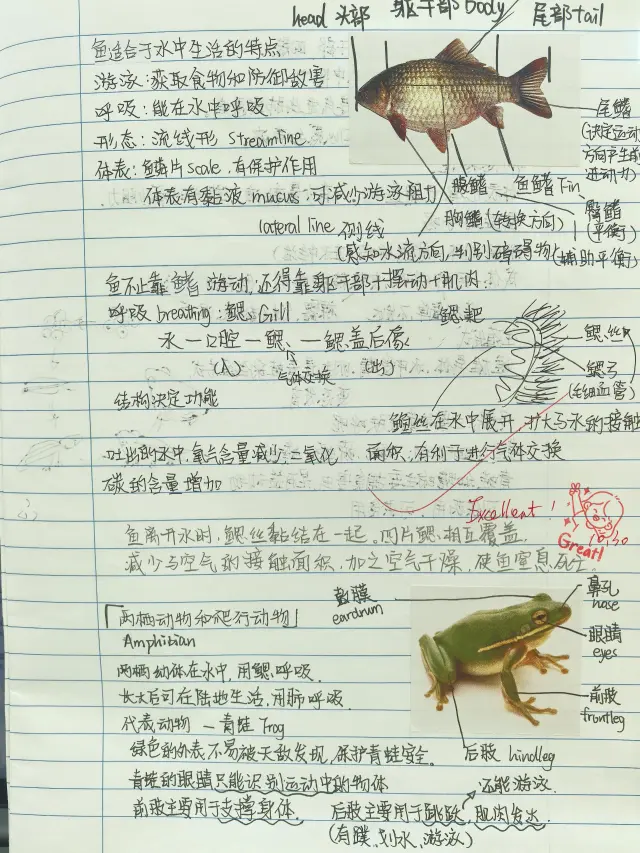 head 头部 躯干部 body 尾部 tail
鱼适合于水中生活的特点
游泳:获取食物和防御敌害
呼吸:能在水中呼吸
形态:流线形 streamline.
体表:鳞片 scale,有保护作用
体表有黏液 mucus:可减少游泳阻力
尾鳍
(决定运动
方向产生前
进动力)
腹鳍 鱼鳍 Fin
臀鳍
(平衡)
胸鳍(转换方向)
(辅助平衡)
lateral line 侧线
(感知水流方向,判别障碍物)
鱼不止靠鳍游动,还得靠躯干部+摆动+肌肉.
呼吸 breathing:鳃 Gill
水—口腔—鳃—鳃盖后缘
(入) 气体交换 (出)
鳃耙
鳃丝
鳃弓
(毛细血管)
结构决定功能
鳃丝在水中展开,扩大与水的接触
面积,有利于进行气体交换
吐出的水中,氧气含量减少,二氧化
碳的含量增加
Excellent!
Great!
鱼离开水时,鳃丝黏结在一起。四片鳃相互覆盖,
减少与空气的接触面积,加之空气干燥,使鱼窒息死亡.
「两栖动物和爬行动物」
Amphibian
鼓膜
eardrum
鼻孔
nose
眼睛
eyes
前肢
frontleg
后肢 hindleg
两栖幼体在水中,用鳃呼吸.
长大后可在陆地生活,用肺呼吸.
代表动物 — 青蛙 Frog
绿色的外表不易被天敌发现,保护青蛙安全.
青蛙的眼睛只能识别运动中的物体
还能游泳.
前肢主要用于支撑身体. 后肢主要用于跳跃,肌肉发达.
(有蹼,划水,游泳)